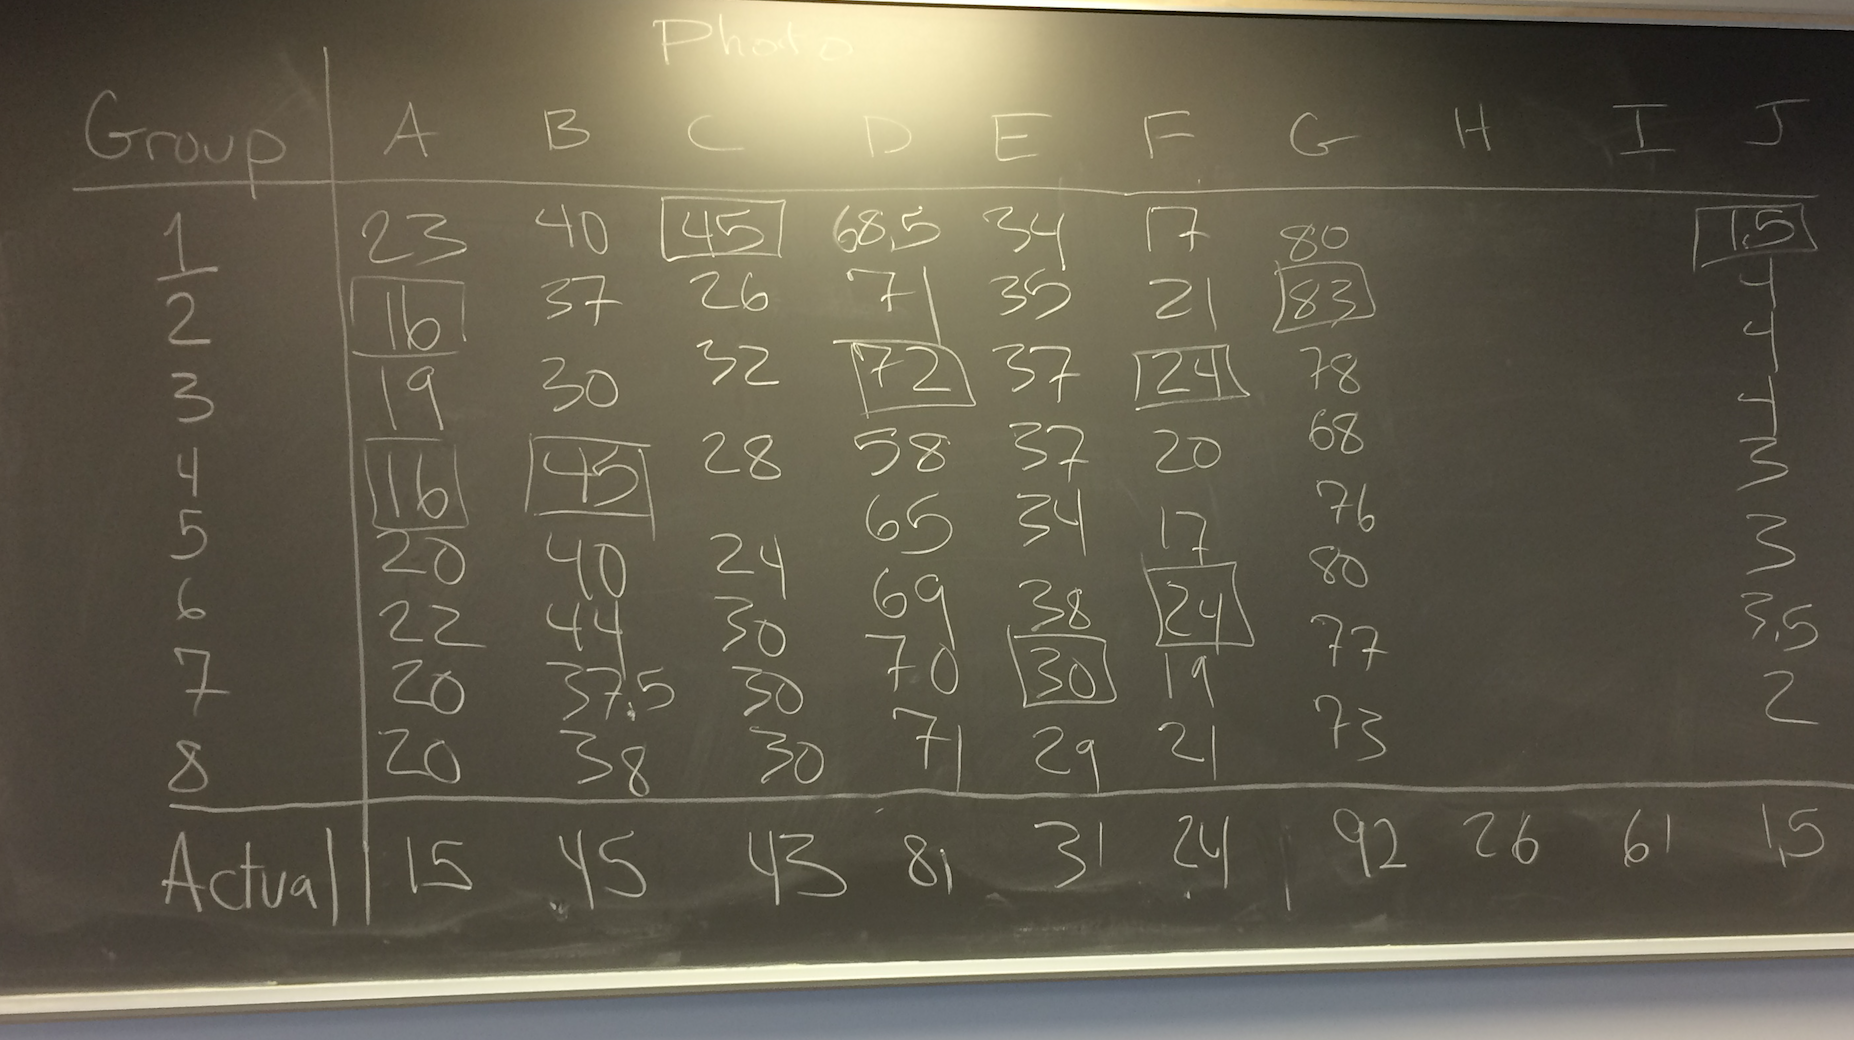 Photo
Group A B C D E F G H I J
1 23 40 45 68.5 34 17 80 1.5
2 16 37 26 71 35 21 83 4
3 19 30 32 72 37 24 78 4
4 16 45 28 58 37 20 68 4
5 20 40 24 65 34 17 76 3
6 22 44 30 69 38 24 80 3
7 20 37.5 30 70 30 19 77 3.5
8 20 38 30 71 29 21 73 2
Actual 15 45 43 81 31 24 92 26 61 1.5